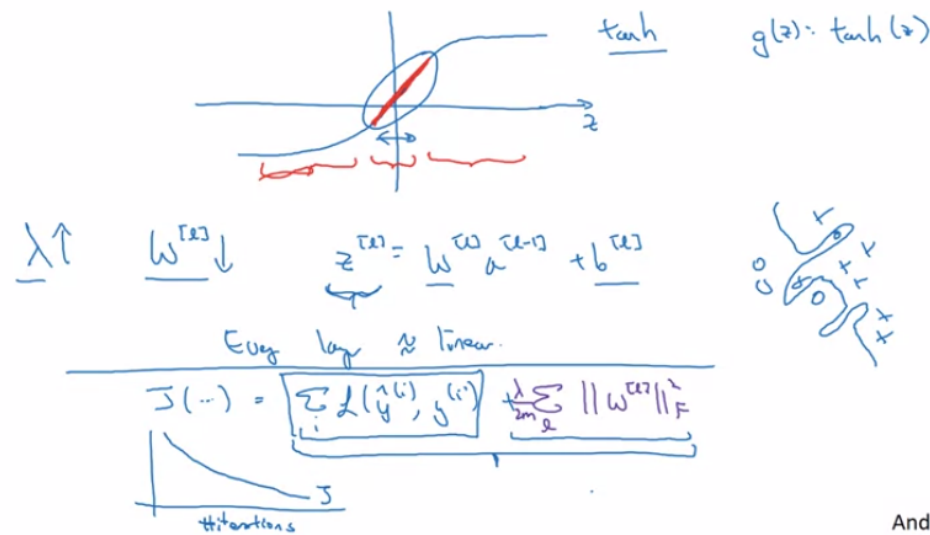 tanh
g(z) = tanh(z)
z
λ↑ W^[l]↓ z^[l] = W^[l] a^[l-1] + b^[l]
Every layer ≈ linear.
J(...) = Σ_i L(ŷ^(i), y^(i)) + λ/2m Σ_l ||W^[l]||²_F
J
#iterations
And